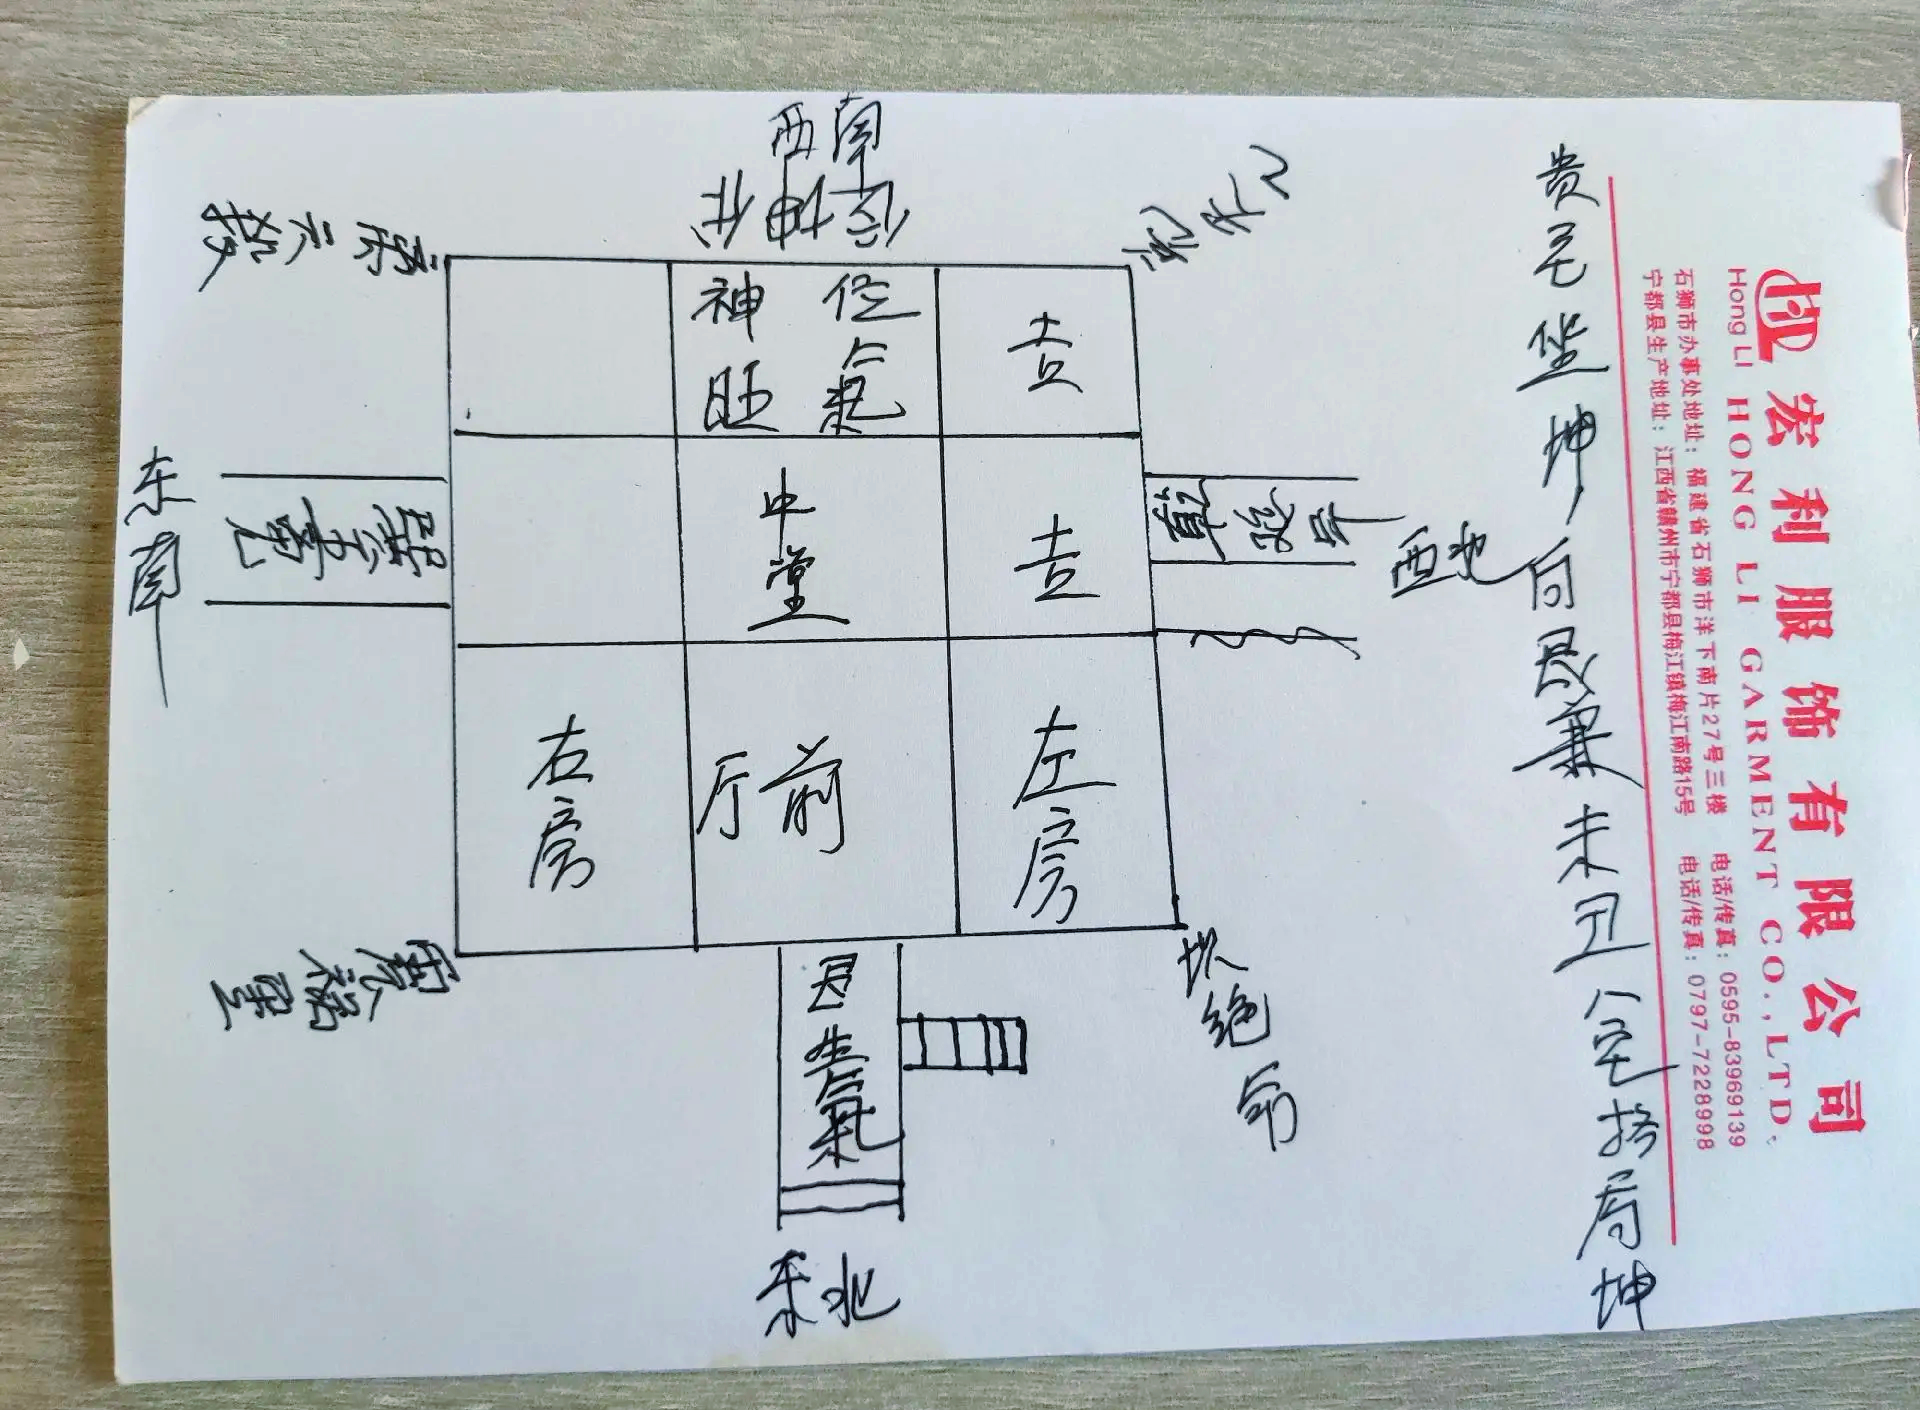 西南
坤位
神位
旺氣
吉
中堂
吉
右房
厅前
左房
东南
巽
西北
乾
延年
艮生氣
东北
坎绝命
震祸
离六
贵宅坐坤向艮兼未丑 宅 局坤
宏利服饰有限公司
HONG LI GARMENT CO.,LTD.
Hong LI
石狮市办事处地址：福建省石狮市洋下南片27号三楼 电话/传真：0595-83969139
宁都县生产地址：江西省赣州市宁都县梅江镇梅江南路15号 电话/传真：0797-7228998